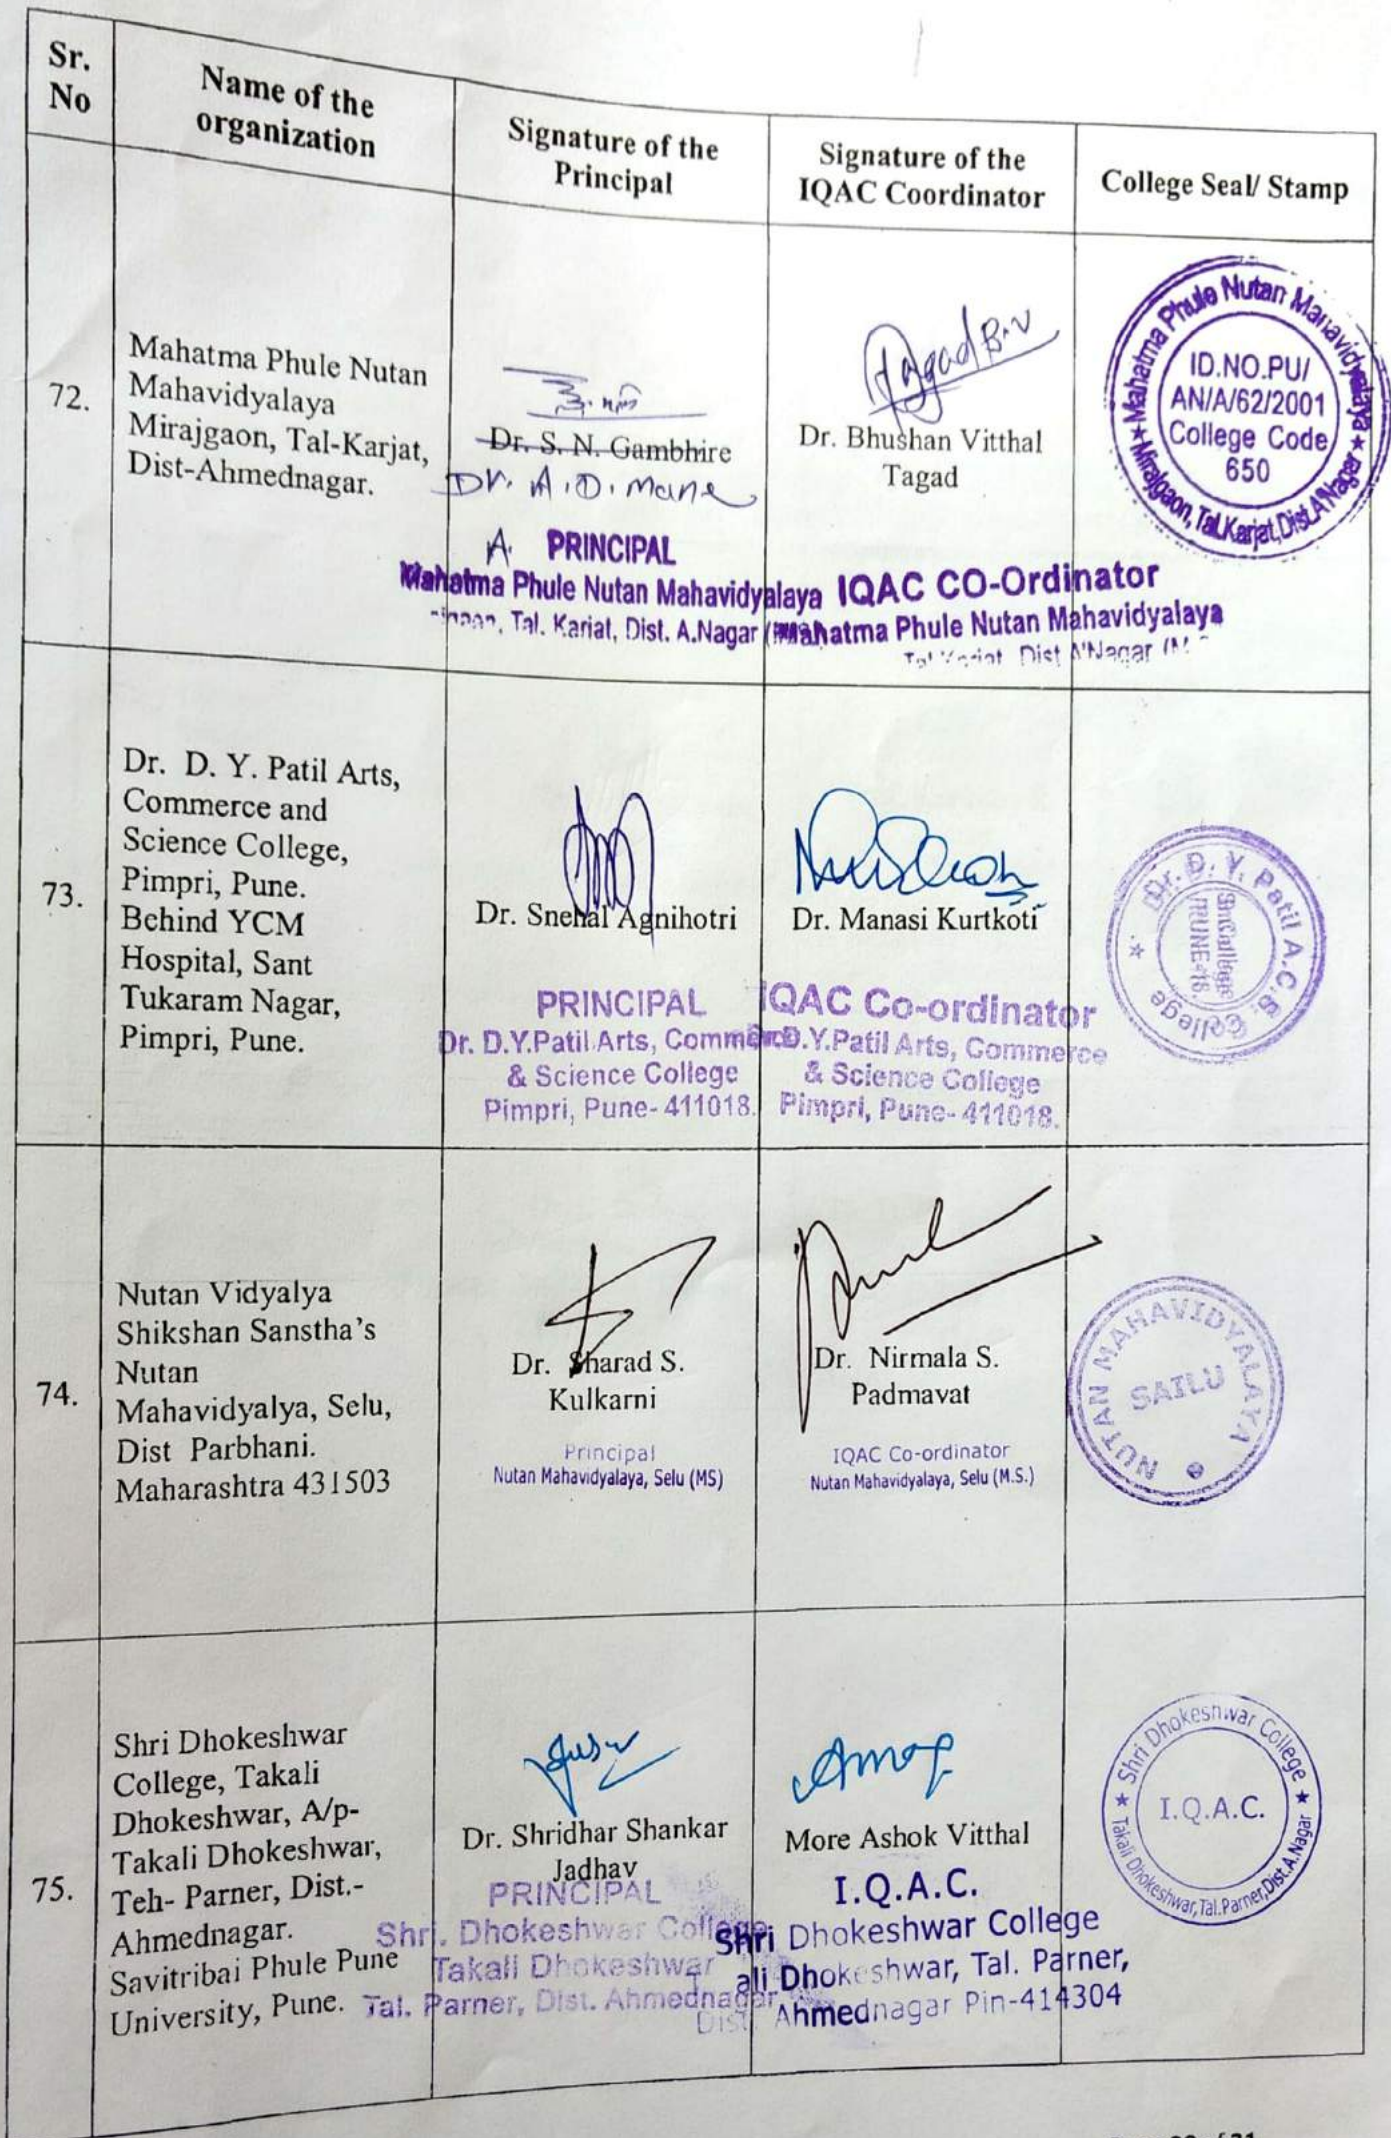 Sr.
No
Name of the
organization
Signature of the
Principal
Signature of the
IQAC Coordinator
College Seal/ Stamp
72.
Mahatma Phule Nutan
Mahavidyalaya
Mirajgaon, Tal-Karjat,
Dist-Ahmednagar.
Dr. S. N. Gambhire
Dr. A.D. Mane
A. PRINCIPAL
Mahatma Phule Nutan Mahavidyalaya
Tal. Karjat, Dist. A.Nagar
Tagad B.V
Dr. Bhushan Vitthal
Tagad
IQAC CO-Ordinator
Mahatma Phule Nutan Mahavidyalaya
Dist A'Nagar
Mahatma Phule Nutan Mahavidyalaya
ID.NO.PU/
AN/A/62/2001
College Code
650
Mirajgaon, Tal.Karjat,Dist.A'Nagar
73.
Dr. D. Y. Patil Arts,
Commerce and
Science College,
Pimpri, Pune.
Behind YCM
Hospital, Sant
Tukaram Nagar,
Pimpri, Pune.
Dr. Snehal Agnihotri
PRINCIPAL
Dr. D.Y.Patil Arts, Commerce
& Science College
Pimpri, Pune- 411018.
Dr. Manasi Kurtkoti
IQAC Co-ordinator
D.Y.Patil Arts, Commerce
& Science College
Pimpri, Pune- 411018.
Dr. D. Y. Patil A.C.S. College
PUNE-18.
74.
Nutan Vidyalya
Shikshan Sanstha's
Nutan
Mahavidyalya, Selu,
Dist Parbhani.
Maharashtra 431503
Dr. Sharad S.
Kulkarni
Principal
Nutan Mahavidyalaya, Selu (MS)
Dr. Nirmala S.
Padmavat
IQAC Co-ordinator
Nutan Mahavidyalaya, Selu (M.S.)
NUTAN MAHAVIDYALAYA
SAILU
75.
Shri Dhokeshwar
College, Takali
Dhokeshwar, A/p-
Takali Dhokeshwar,
Teh- Parner, Dist.-
Ahmednagar.
Savitribai Phule Pune
University, Pune.
Dr. Shridhar Shankar
Jadhav
PRINCIPAL
Shri. Dhokeshwar College
Takali Dhokeshwar
Tal. Parner, Dist. Ahmednagar
More Ashok Vitthal
I.Q.A.C.
Shri Dhokeshwar College
ali Dhokeshwar, Tal. Parner,
Dist. Ahmednagar Pin-414304
Shri Dhokeshwar College
I.Q.A.C.
Takali Dhokeshwar,Tal.Parner,Dist.A.Nagar